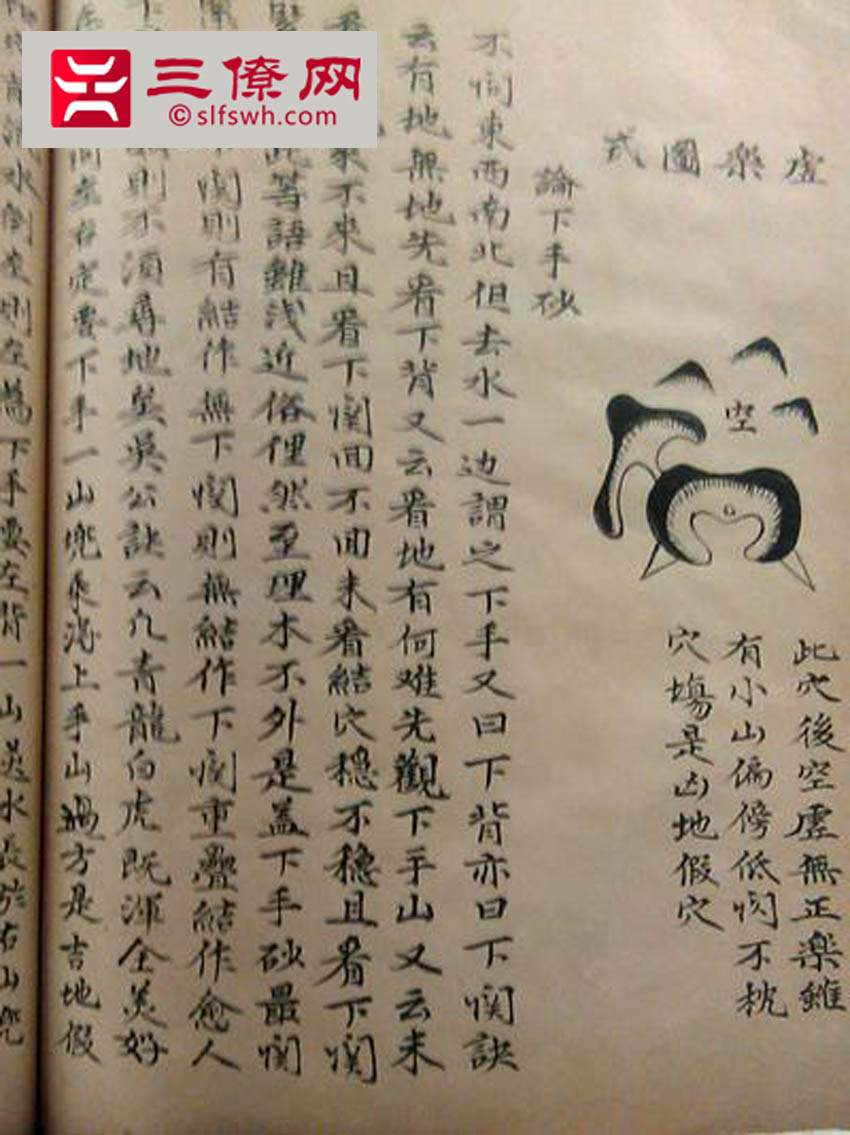 三僚网
©slfswh.com
虗楽圖式
空
此穴後空虗無正楽雖
有小山偏傍低関不枕
穴塲是凶地假穴
論下手砂
不問東西南北但去水一边謂之下手又曰下背亦曰下関訣
云有地無地先看下背又云看地有何难先觀下手山又云未
来不来且看下関囬不囬未看結穴穩不穩且看下関
此等語雖浅近俗俚然至理木不外是盖下手砂最関
下関則有結作無下関則無結作下関重疊結作愈人
則不須尋地矣吳公訣云凢青龍白虎既渾全美好
問左右定要下手一山兜湾上手山過方是吉地假
水倒左則左為下手要左背一山逆水長於右山兜